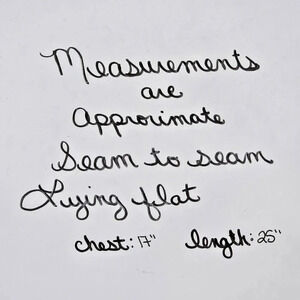 Measurements
are
Approximate
Seam to seam
Lying flat
chest: 17" length: 25"